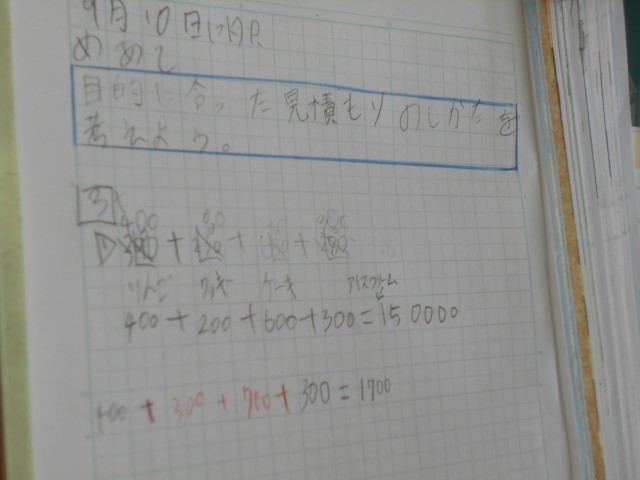 9月10日(水)P.
めあて
目的に合った見積もりのしかたを
考えよう。
3
400
+ + +
リンゴ ケーキ アイスクリーム
400+200+600+300=150000
400+300+700+300=1700